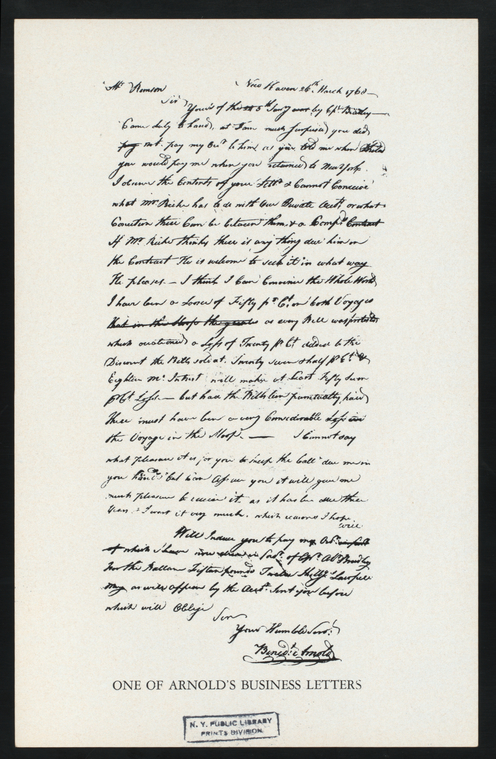 Mr Remsen New Haven 26th March 1768
Sir
Yours of the 5th Jany by Cpt Bradley
Came duly to hand, at I am much Surprised you did
not pay my Ordr to him as you told me when
you would pay me when you returned to New York
I observe the Contents of your Letter & Cannot Conceive
what Mr Riche has to do with our Private Acct, or what
Conection there Can be between them, & a Comp
If Mr Riche thinks there is any thing due him on
the Contract He is welcome to seek it in what way
He pleases — I think I Can Convince the Whole World
I have been a Looser of Fifty pr Ct on both Voyages
that in the Sloop the as every Bill was protested
which occationed a Loss of Twenty pr Ct
Discount the Bills sold at. Twenty seven & half pr Ct &
Eighteen Mo Intrest will make at Least Fifty Seven
pr Ct Loss. — but had the Bills been punctually paid
There must have been a very Considerable Loss on
the Voyage in the Sloop. — I Cannot say
what pleasure it is for you to keep the ball due me in
you but Can Assure you it will give me
much pleasure to receive it. as it has been due three
Years. & I want it very much. which reasons I hope
will
Induce you to pay my Ordr
of which I have now in favr of Cpt Abm Bradley
for the Ballan Fifteen pounds Twelve Shillgs Lawfull
as will appear by the Acct. Sent you before
which will Oblige
Sir
Your Humble Servt
Benedt Arnold
ONE OF ARNOLD'S BUSINESS LETTERS
N. Y. PUBLIC LIBRARY
PRINTS DIVISION